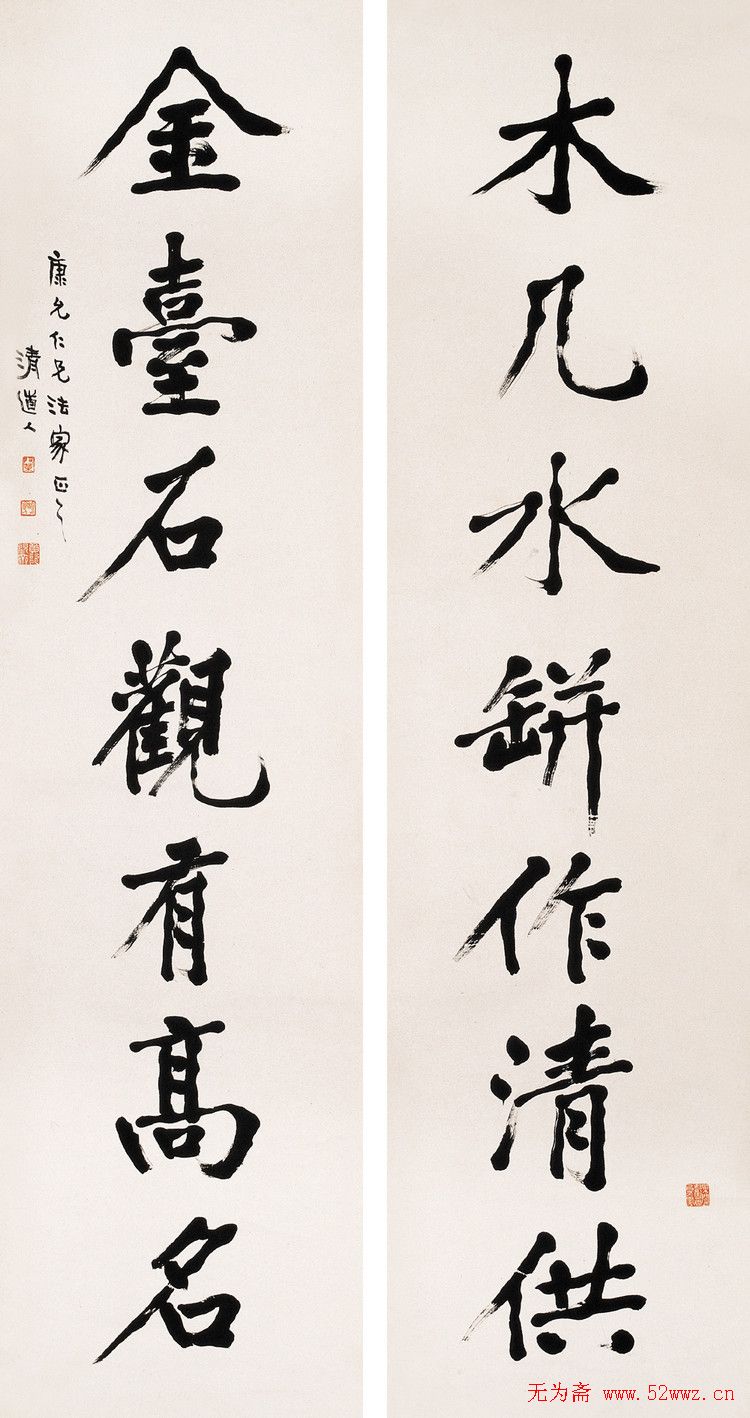 木几水缾作清供
金臺石觀有高名
康允仁兄法家正之
清道人
无为斋 www.52wwz.cn